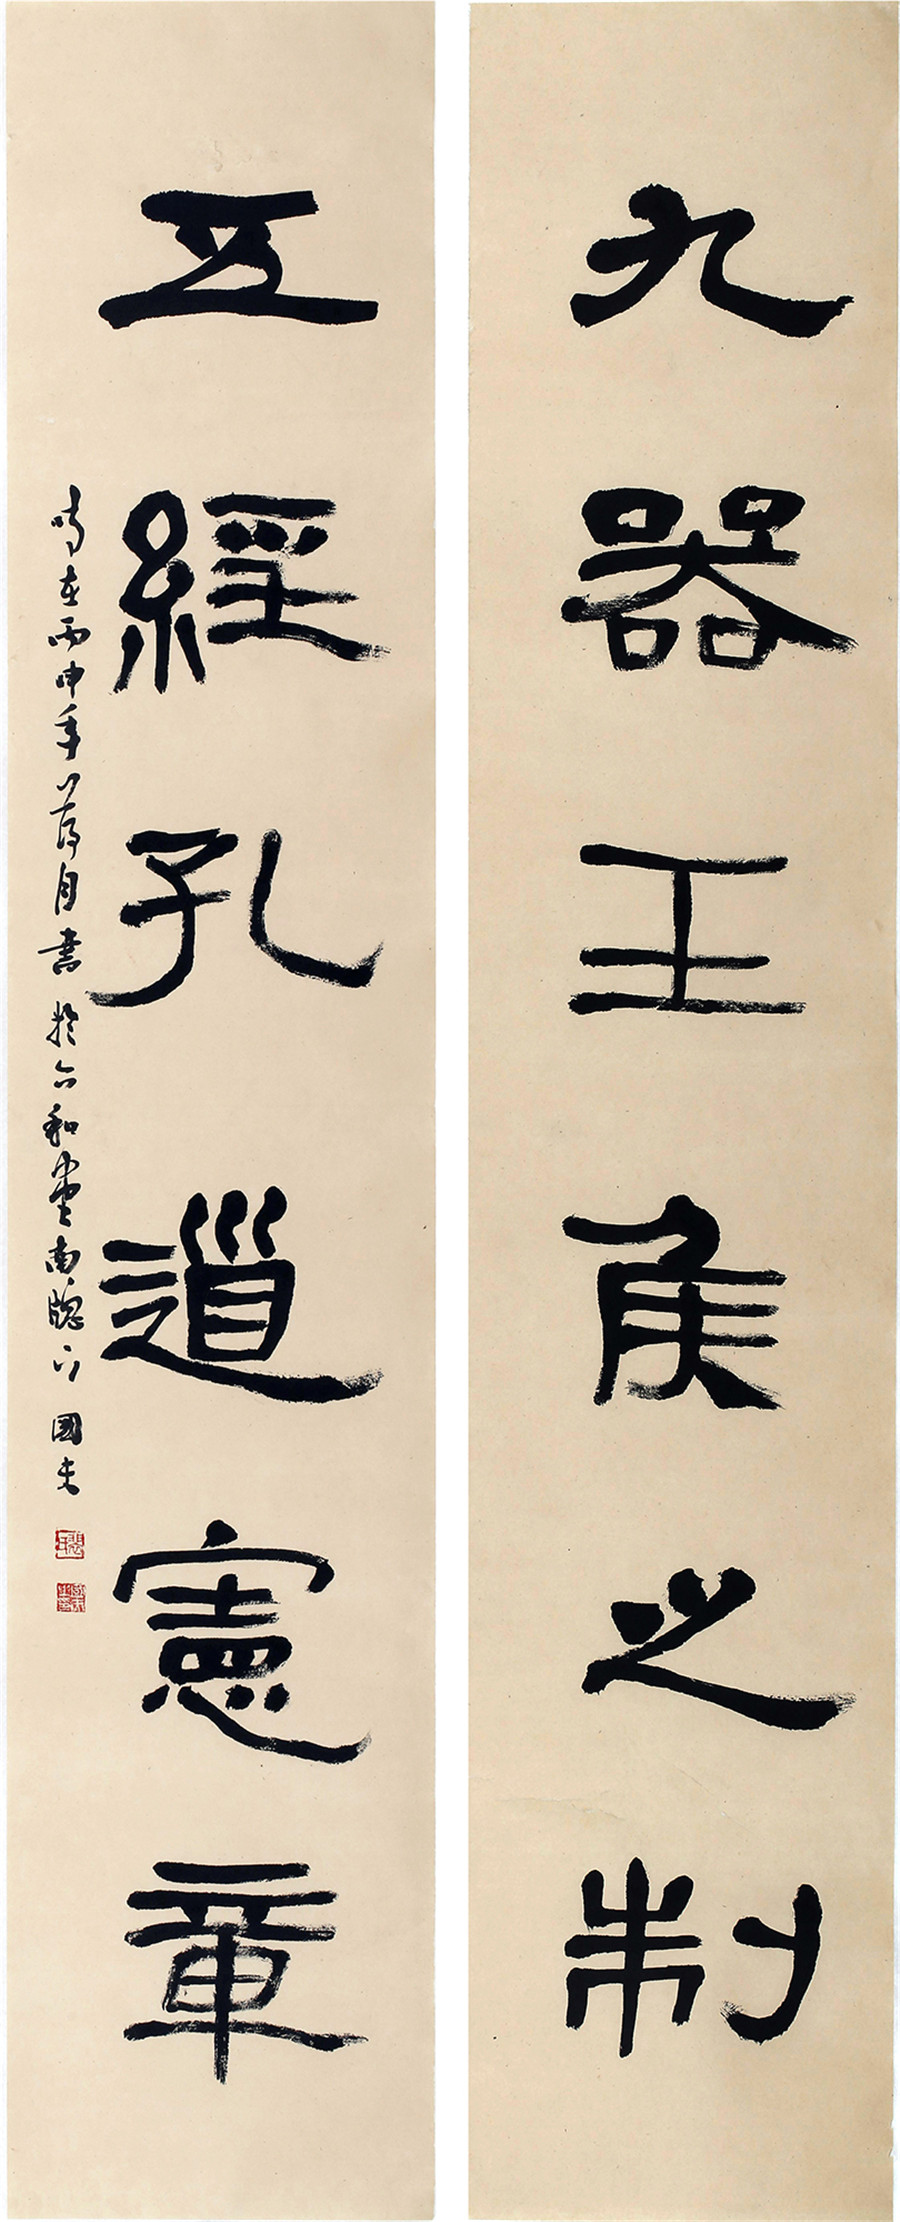 九器王侯之制
五經孔道憲章
時在丙申年八月書於六和堂南窗下 國夫